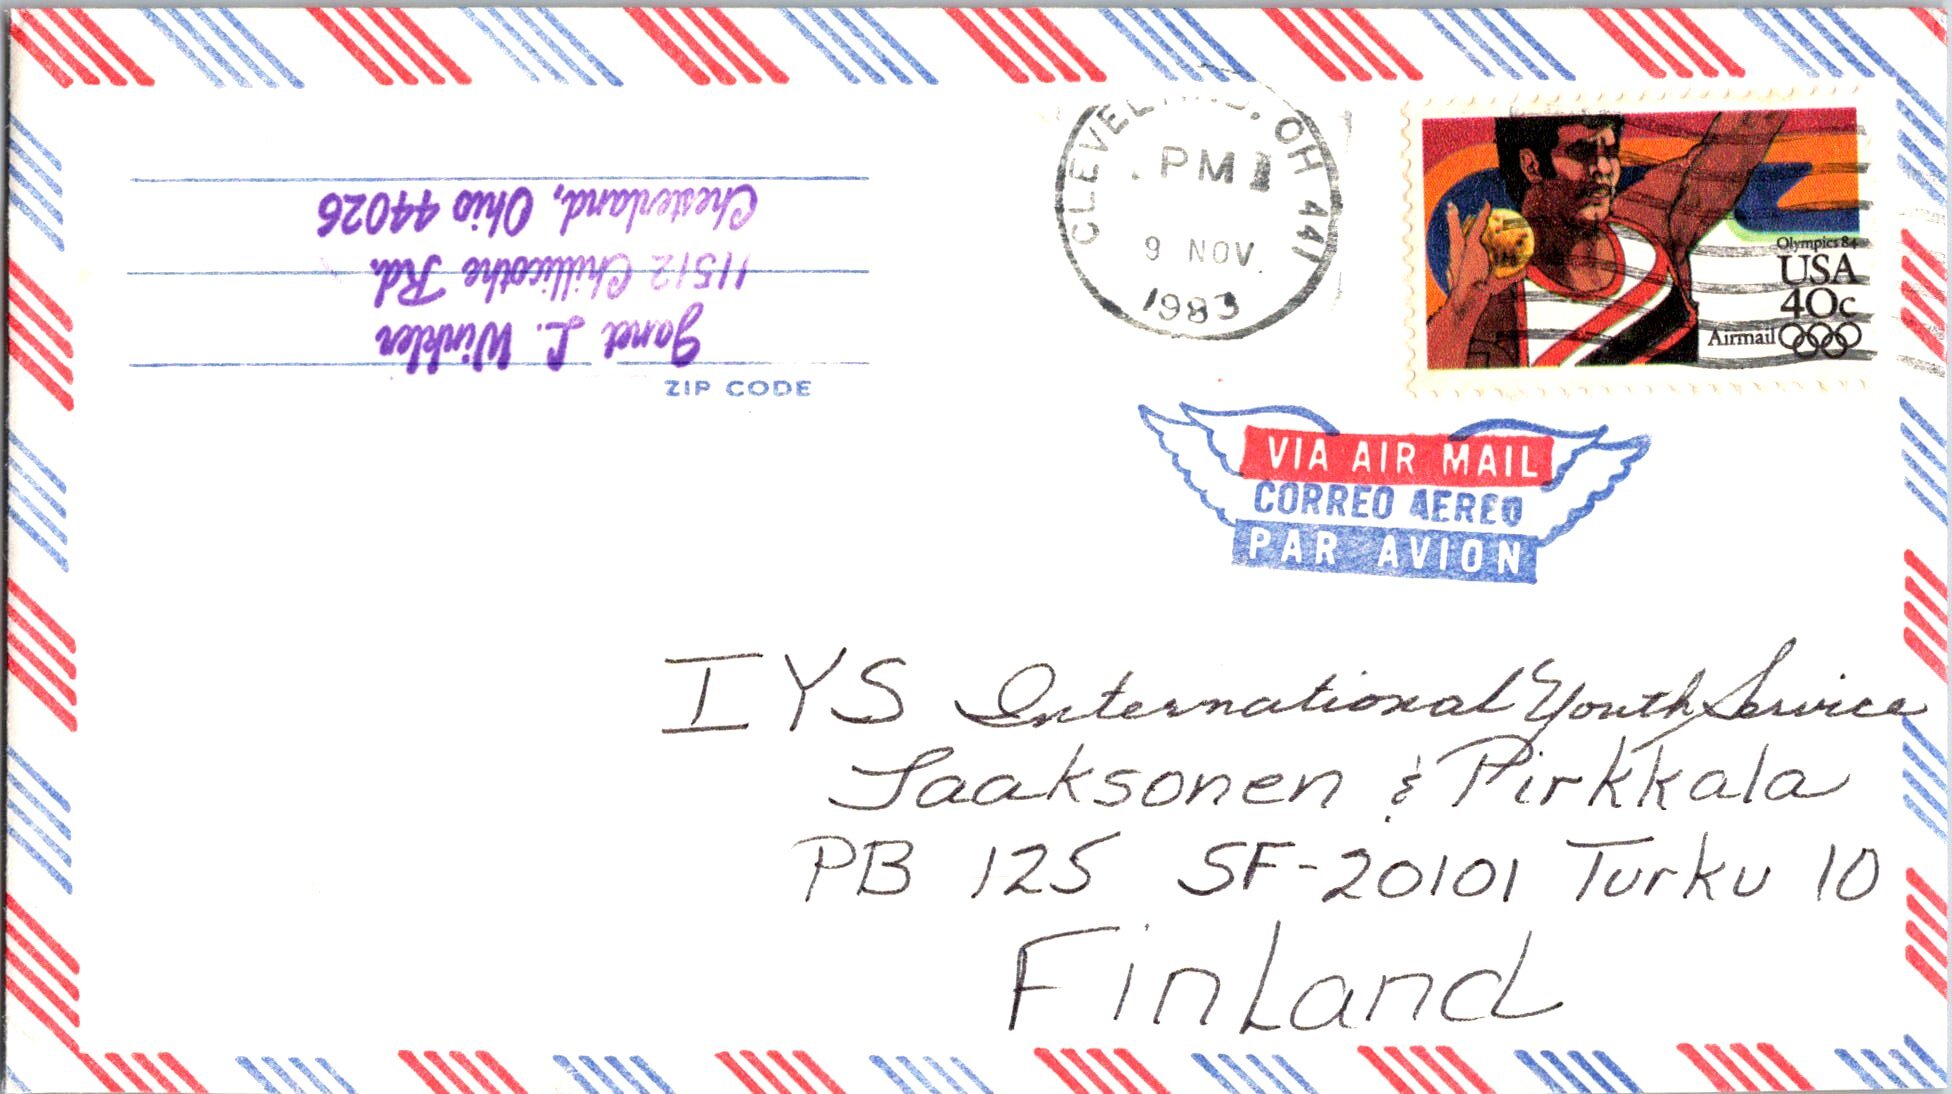 Janet L. Winkler
11512 Chillicothe Rd.
Chesterland, Ohio 44026
ZIP CODE
CLEVELAND, OH 441
PM
9 NOV
1983
Olympics 84
USA
40c
Airmail
VIA AIR MAIL
CORREO AEREO
PAR AVION
IYS International Youth Service
Jaaksonen & Pirkkala
PB 125 SF-20101 Turku 10
Finland